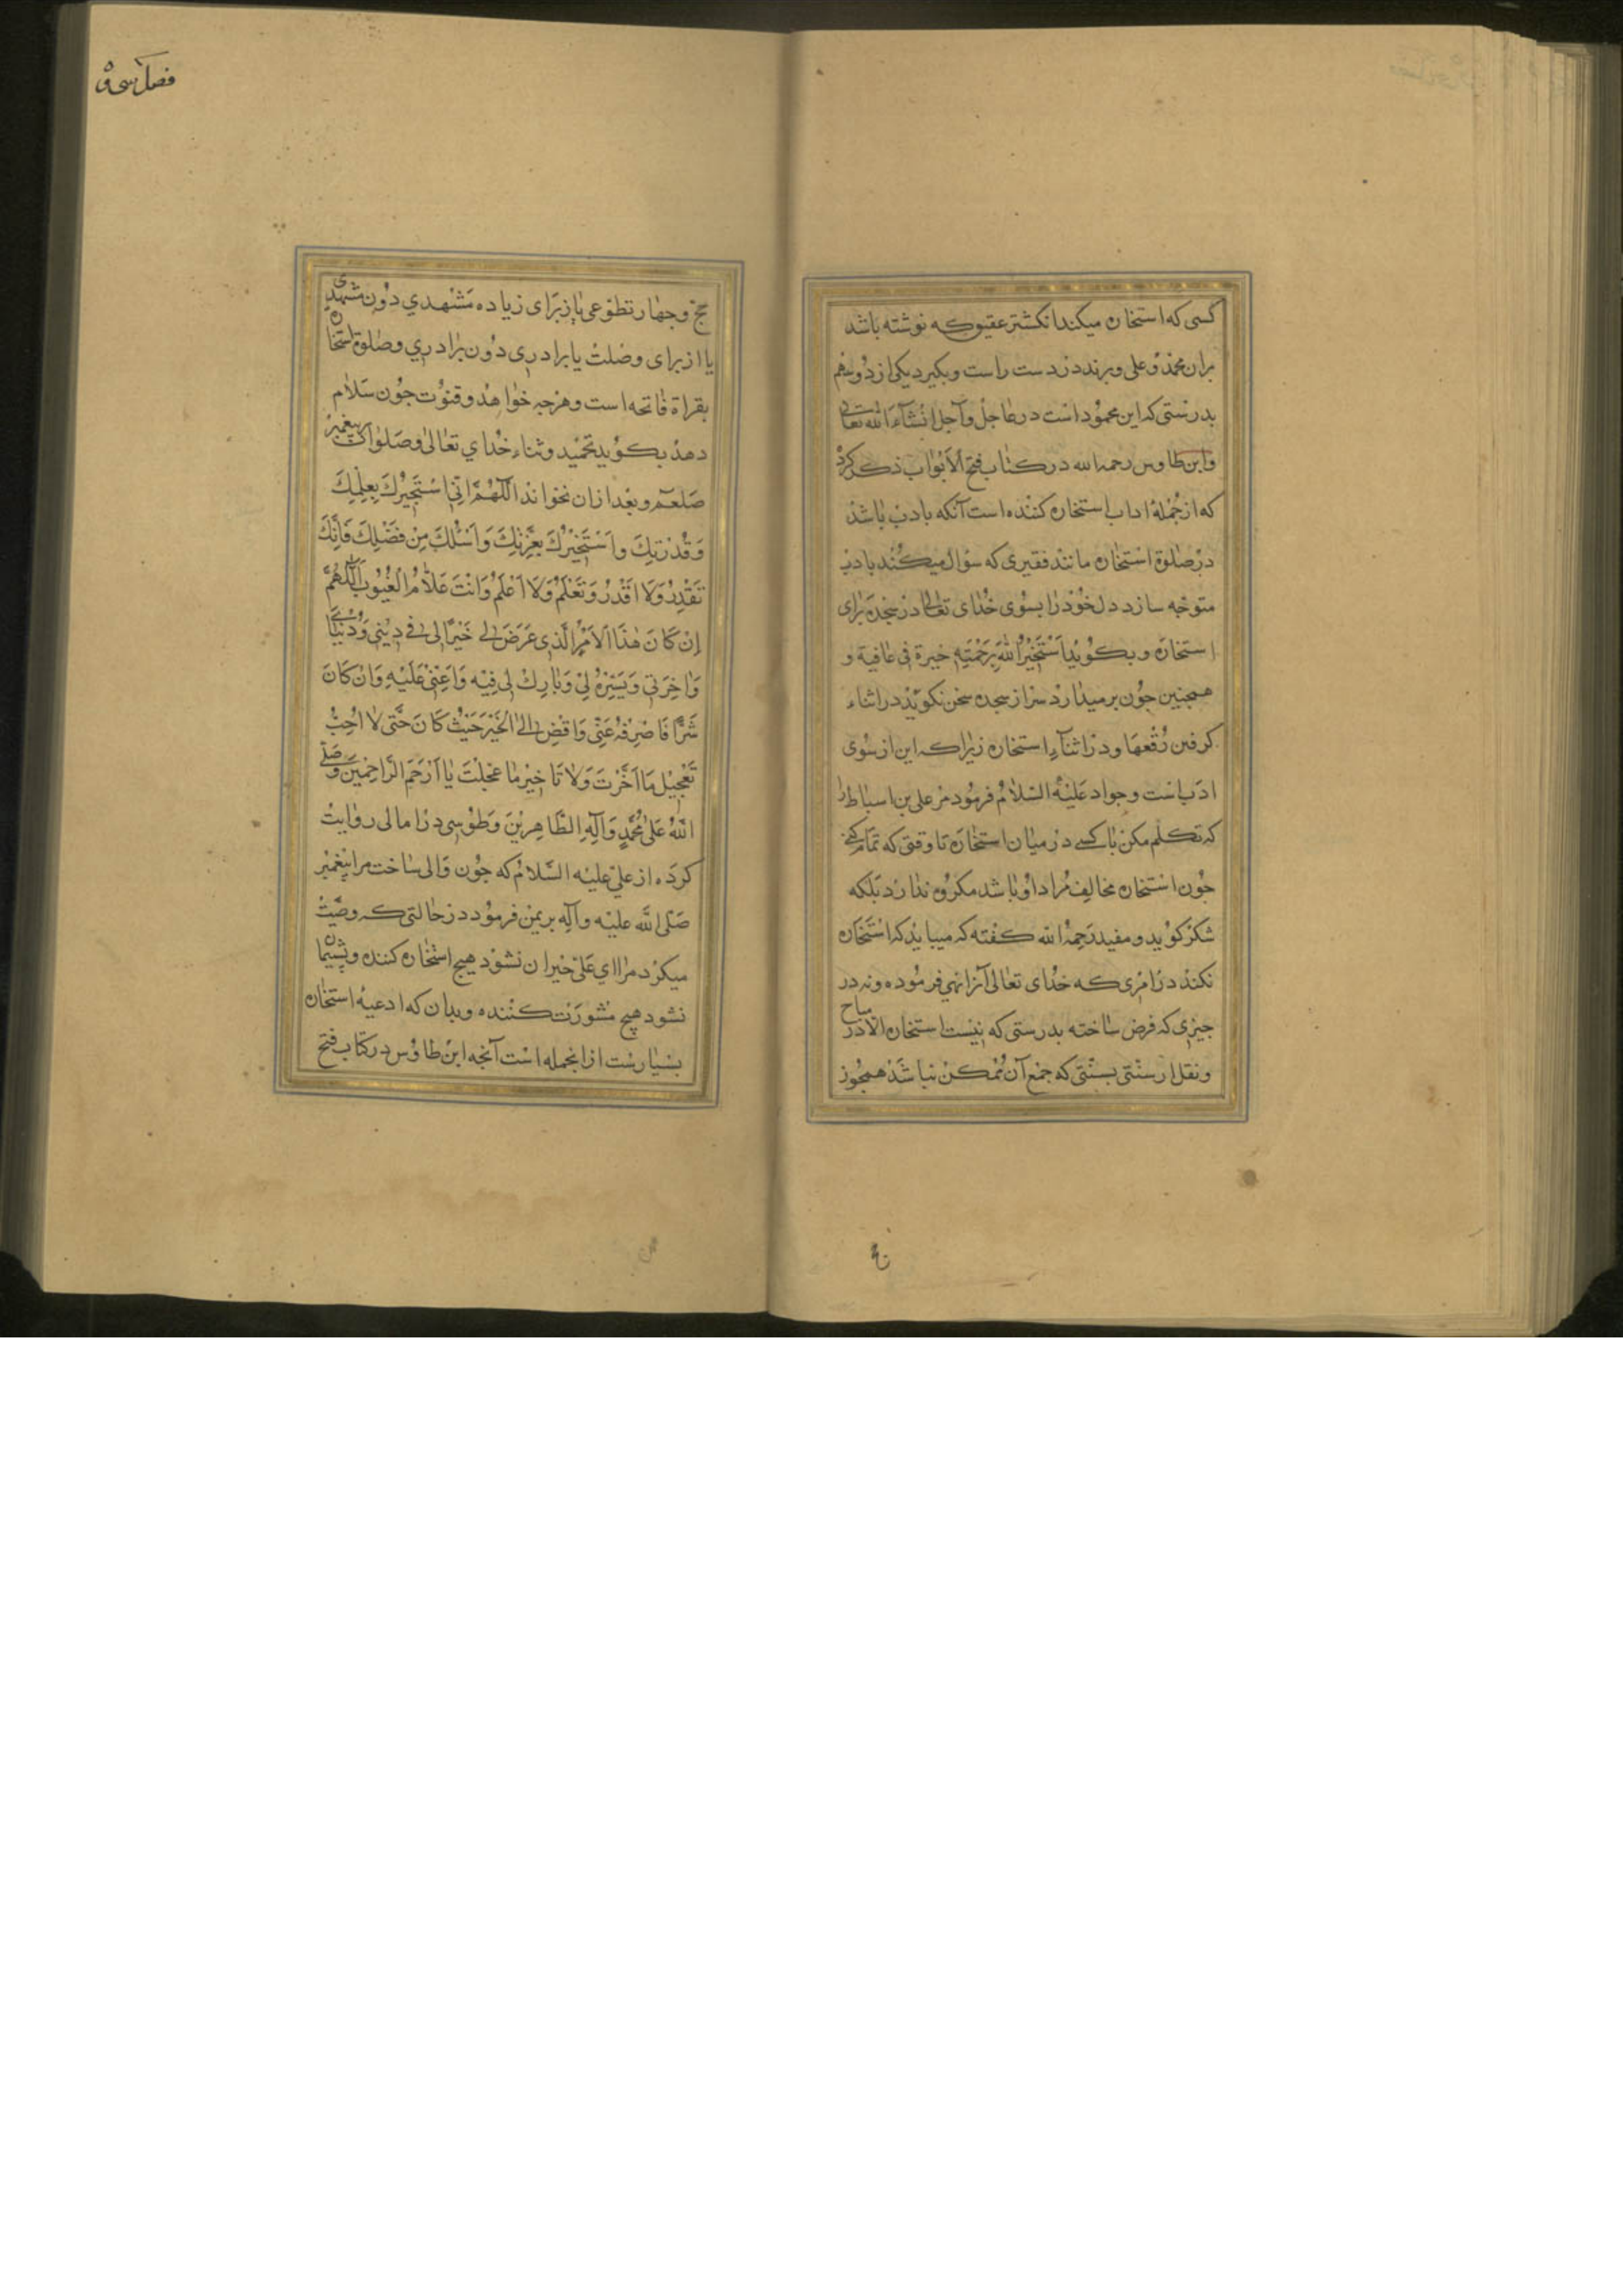 کسی که استخاره میکند انکشتر عقیق که نوشته باشد
بران محمد و علی و برند در دست راست و بکیرد یکی از دو سهم
بدرستی که این محمود است در عاجل و آجل انشآء الله تعالی
وابن طاوس رحمه الله در کتاب فتح الابواب ذکر کرد
که از جمله اداب استخاره کننده است آنکه بادب باشد
در صلوة استخاره مانند فقیری که سؤال میکند بادب
متوجه سازد دل خود را بسوی خدای تعالی در سجده برای
استخاره و بکوید استخیر الله برحمته خیرة فی عافیة و
همچنین جون برمیدارد سر از سجده سخن نکوید در اثناء
کرفتن رقعها و در اثناء استخاره زیرا که این از سوی
ادب است و جواد علیه السلام فرمود مر علی بن اسباط را
که تکلم مکن با کسی در میان استخاره تا وقتی که تمام کنی
جون استخاره مخالف مراد او باشد مکروه ندارد بلکه
شکر کوید و مفید رحمه الله کفته که میباید که استخاره
نکند در امری که خدای تعالی آنرا نهی فرموده و نه در
جیزی که فرض ساخته بدرستی که نیست استخاره الا در مباح
و نقل از سنتی بسنتی که جمع آن ممکن نباشد همجو
فصل سی و
حج و جهاد تطوعی یا از برای زیاده مشهدی دون مشهدی
یا از برای وصلت یا برادری دون برادری و صلوة استخاره
بقراة فاتحه است و هرجه خواهد و قنوت جون سلام
دهد بکوید تحمید و ثناء خدای تعالی و صلوات بر پیغمبر
صلعم و بعد از ان بخواند اللهم انی استخیرک بعلمک
وَقُدْرَتِكَ وَاَسْتَخِیْرُكَ بِعِزَّتِكَ وَاَسْئَلُكَ مِنْ فَضْلِكَ فَاِنَّكَ
تَقْدِرُ وَلَا اَقْدِرُ وَتَعْلَمُ وَلَا اَعْلَمُ وَاَنْتَ عَلَّامُ الْغُیُوبِ اَللّٰهُمَّ
اِنْ كَانَ هٰذَا الْاَمْرُ الَّذِی عَرَضَ لِی خَیْرًا لِی فِی دِیْنِی وَدُنْیَایَ
وَاٰخِرَتِی وَیَسِّرْهُ لِیْ وَبَارِكْ لِی فِیْهِ وَاَعِنِّیْ عَلَیْهِ وَاِنْ كَانَ
شَرًّا فَاصْرِفْهُ عَنِّیْ وَاقْضِ لِیَ الْخَیْرَ حَیْثُ كَانَ حَتّٰی لَا اُحِبُّ
تَعْجِیْلَ مَا اَخَّرْتَ وَلَا تَاخِیْرَ مَا عَجَّلْتَ یَا اَرْحَمَ الرَّاحِمِیْنَ وَصَلَّی
اللهُ عَلٰی مُحَمَّدٍ وَآلِهِ الطَّاهِرِیْنَ و طوسی در امالی روایت
کرده از علی علیه السلام که جون والی ساخت مرا پیغمبر
صلی الله علیه وآله بر یمن فرمود در حالتی که وصیت
میکرد مرا ای علی حیران نشود هیچ استخاره کننده و پشیمان
نشود هیچ مشورت کننده و بدان که ادعیه استخاره
بسیارست از انجمله است آنجه ابن طاوس در کتاب فتح